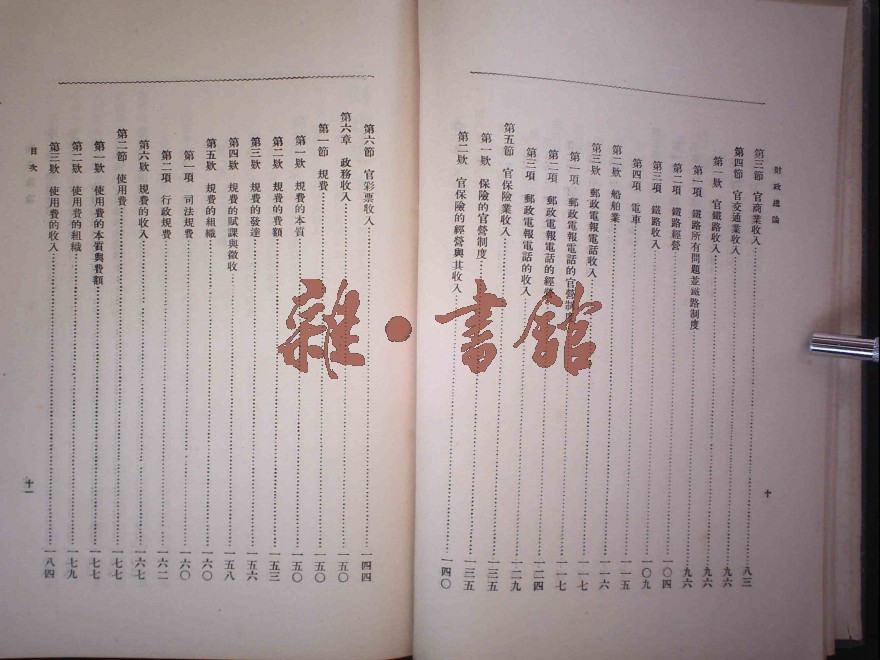 財政通論
第三節 官商業收入 八三
第四節 官交通業收入 九六
第一欵 官鐵路收入 九六
第一項 鐵路所有問題並鐵路制度 九六
第二項 鐵路經營 一〇四
第三項 鐵路收入 一〇九
第四項 電車 一一五
第二欵 船舶業 一一六
第三欵 郵政電報電話收入 一一七
第一項 郵政電報電話的官營制度 一一七
第二項 郵政電報電話的經營 一二四
第三項 郵政電報電話的收入 一二九
第五節 官保險業收入 一三五
第一欵 保險的官營制度 一三五
第二欵 官保險的經營與其收入 一四〇
十
第六節 官彩票收入 一四四
第六章 政務收入 一五〇
第一節 規費 一五〇
第一欵 規費的本質 一五〇
第二欵 規費的費額 一五三
第三欵 規費的發達 一五六
第四欵 規費的賦課與徵收 一五八
第五欵 規費的組織 一六〇
第一項 司法規費 一六〇
第二項 行政規費 一六二
第六欵 規費的收入 一六七
第二節 使用費 一七七
第一欵 使用費的本質與費額 一七七
第二欵 使用費的組織 一七九
第三欵 使用費的收入 一八四
目次
十一
雜·書館